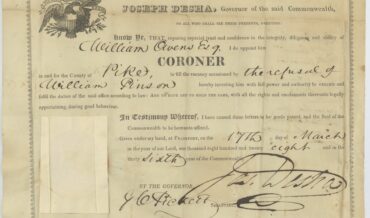 JOSEPH DESHA, Governor of the said Commonwealth,
TO ALL WHO SHALL SEE THESE PRESENTS, GREETING:
Know Ye, THAT, reposing especial trust and confidence in the integrity, diligence and ability of
William Owens Esq. I do appoint him
CORONER
in and for the County of Pike, to fill the vacancy occasioned by the refusal of
William Pinson hereby investing him with full power and authority to execute and
fulfil the duties of the said office according to law: And to have and to hold the same, with all the rights and emoluments thereunto legally
appertaining, during good behaviour.
In Testimony Whereof, I have caused these letters to be made patent, and the Seal of the
Commonwealth to be hereunto affixed.
Given under my hand, at Frankfort, on the 17th day of March
in the year of our Lord, one thousand eight hundred and twenty eight and in the
thirty sixth year of the Commonwealth.
BY THE GOVERNOR.
Jos. Desha
J C Pickett Secretary.